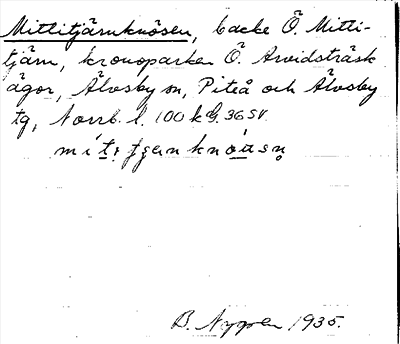 Mittitjärnknösen, backe Ö. Mitti-
tjärn, kronoparken Ö. Arvidsträsk
ägor, Älvsby sn, Piteå och Älvsby
tg, Norrb. l. 100 k bl. 36 SV.
B. Nygren 1935.